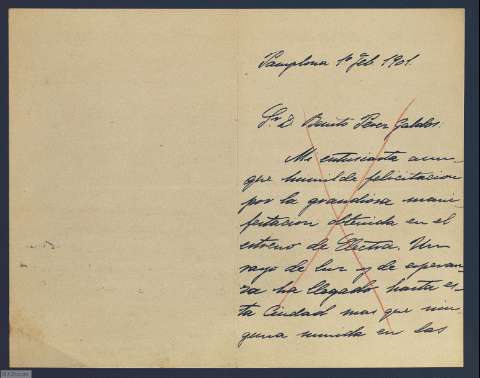 Pamplona 1º Feb 1901.
Sr. D. Benito Perez Galdos.
Mi entusiasta aun-
que humilde felicitacion
por la grandiosa mani
festacion obtenida en el
estreno de Electra. Un
rayo de luz y de esperan-
za ha llegado hasta es-
ta Ciudad mas que nin
guna sumida en las